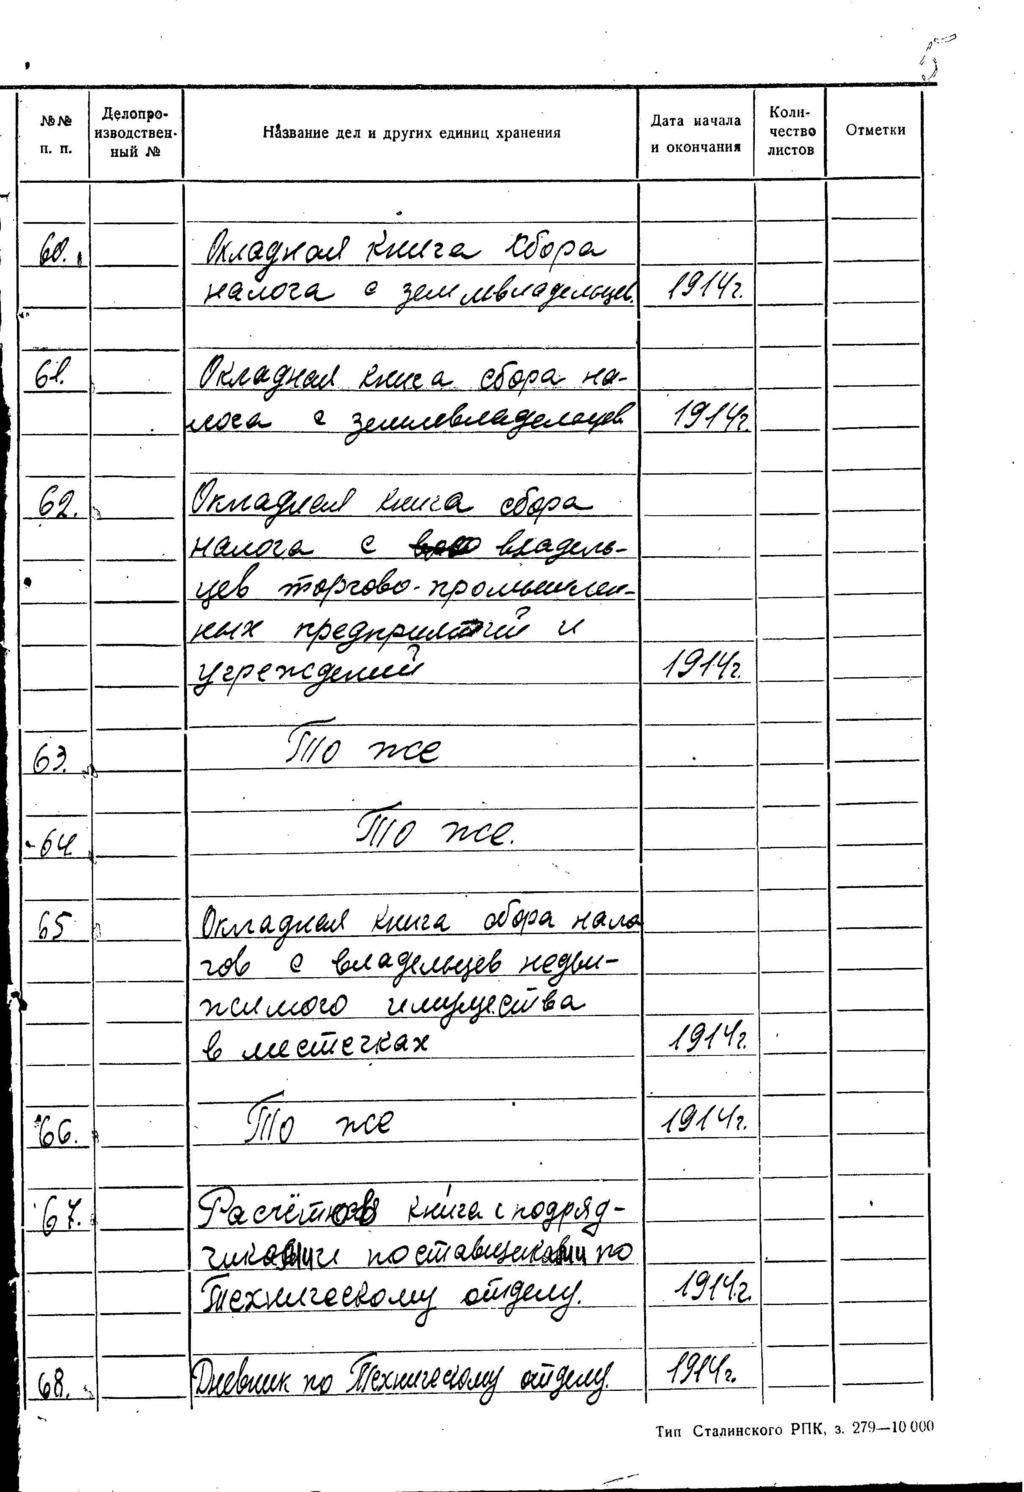 5
№№ п. п.
Делопро-
изводствен-
ный №
Название дел и других единиц хранения
Дата начала
и окончания
Коли-
чество
листов
Отметки
60. Окладная книга сбора
налога с землевладельцев. 1914г.
61. Окладная книга сбора на-
лога с землевладельцев 1914г.
62. Окладная книга сбора
налога с владель-
цев торгово-промышлен-
ных предприятий и
учреждений 1914г.
63. То же
64 То же.
65 Окладная книга сбора нало
гов с владельцев недви-
жимого имущества
в местечках 1914г.
66. То же 1914г.
67. Расчётная книга с подряд-
чиками и поставщиками по
Техническому отделу. 1914г.
68. Дневник по Техническому отделу. 1914г.
Тип Сталинского РПК, з. 279—10 000